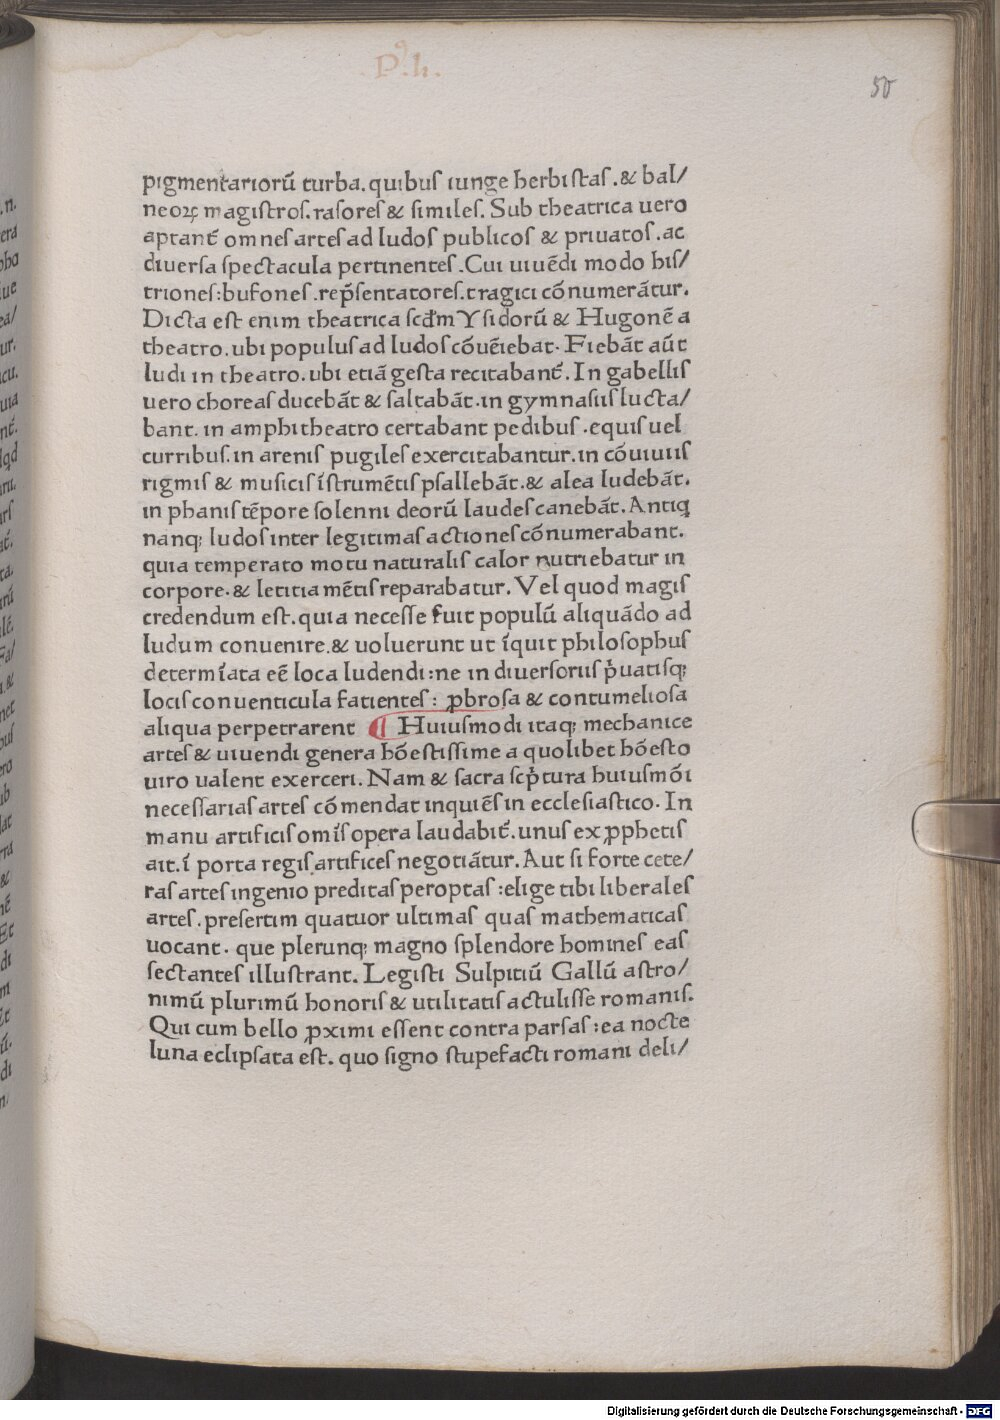 .P⁹.h.
50
pigmentariorū turba. quibuſ iunge herbiſtaſ .& bal/
neoꝝ magiſtroſ. raſoreſ & ſimileſ. Sub theatrica uero
aptant̄ omneſ arteſ ad ludoſ publicoſ & priuatoſ .ac
diuerſa ſpectacula pertinenteſ .Cui uiuēdi modo hiſ/
trioneſ: bufoneſ .rep̄ſentatoreſ. tragici cōnumerātur.
Dicta eſt enim theatrica ſcđm Yſidorū & Hugonē a
theatro. ubi populuſ ad ludoſ cōuēiebat. Fiebāt aūt
ludi in theatro. ubi etiā geſta recitabant̄. In gabelliſ
uero choreaſ ducebāt & ſaltabāt. in gymnaſiiſ lucta/
bant. in amphitheatro certabant pedibuſ .equiſ uel
curribuſ. in areniſ pugileſ exercitabantur. in cōuiuiiſ
rigmiſ & muſiciſ īſtrumētiſ pſallebāt. & alea ludebāt.
in phaniſ tēpore ſolenni deorū laudeſ canebāt. Antiq
nanqꝫ ludoſ inter legitimaſ actioneſ cōnumerabant.
quia temperato motu naturaliſ calor nutriebatur in
corpore. & letitia mētiſ reparabatur. Vel quod magiſ
credendum eſt. quia neceſſe fuit populū aliquādo ad
ludum conuenire. & uoluerunt ut īquit philoſophuſ
determīata eē loca ludendi: ne in diuerſoriiſ p̓uatiſqꝫ
lociſ conuenticula fatienteſ : ꝓbroſa & contumelioſa
aliqua perpetrarent ¶ Huiuſmodi itaqꝫ mechanice
arteſ & uiuendi genera hōeſtiſſime a quolibet hōeſto
uiro ualent exerceri. Nam & ſacra ſcp̓tura huiuſmōi
neceſſariaſ arteſ cōmendat inquiēſ in eccleſiaſtico. In
manu artificiſ omīſ opera laudabit̄. unuſ ex ꝓphetiſ
ait. ī porta regiſ artificeſ negotiātur. Aut ſi forte cete/
raſ arteſ ingenio preditaſ peroptaſ : elige tibi liberaleſ
arteſ. preſertim quatuor ultimaſ quaſ mathematicaſ
uocant. que plerunqꝫ magno ſplendore homineſ eaſ
ſectanteſ illuſtrant. Legiſti Sulpitiū Gallū aſtro/
nimū plurimū honoriſ & utilitatiſ actuliſſe romaniſ.
Qui cum bello ꝓximi eſſent contra parſaſ : ea nocte
luna eclipſata eſt. quo ſigno ſtupefacti romani deli/
Digitalisierung gefördert durch die Deutsche Forschungsgemeinschaft - DFG